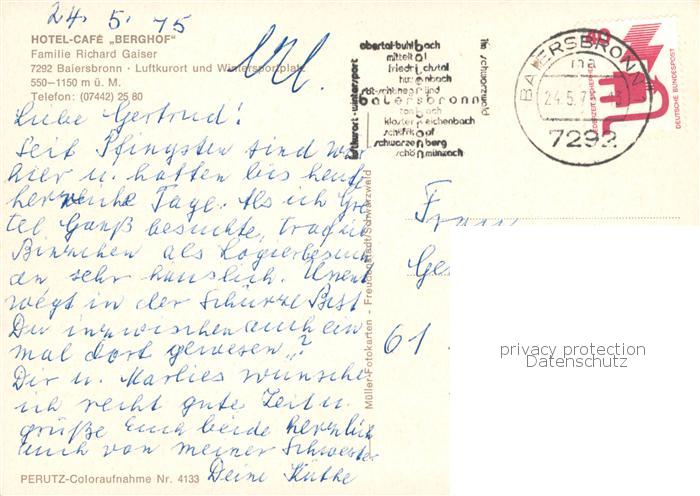 24. 5. 75
HOTEL-CAFÉ „BERGHOF"
Familie Richard Gaiser
7292 Baiersbronn · Luftkurort und Wintersportplatz
550–1150 m ü. M.
Telefon: (07442) 25 80
Liebe Gertrud!
Seit Pfingsten sind wir
hier u. hatten bis heute
herrliche Tage. Als ich Gre
tel Ganß besuchte, traf ich
Bienchen als Logierbesuch
an sehr häuslich. Unent
wegt in der Schürze. Bist
Du inzwischen auch ein
mal dort gewesen?
Dir u. Marlies wünsche
ich recht gute Zeit u.
grüße Euch beide herzlich
auch von meiner Schwester
Deine Käthe
PERUTZ-Coloraufnahme Nr. 4133
Müller-Fotokarten - Freudenstadt/Schwarzwald
luftkurort · wintersport
obertal-buhlbach
mitteltal
friedrichstal
huzenbach
röt-schönegründ
baiersbronn
tonbach
klosterreichenbach
schwarzenberg
schönmünzach
im schwarzwald
BAIERSBRONN
ma
24.5.7
7292
DEUTSCHE BUNDESPOST
Frau
61
privacy protection
Datenschutz